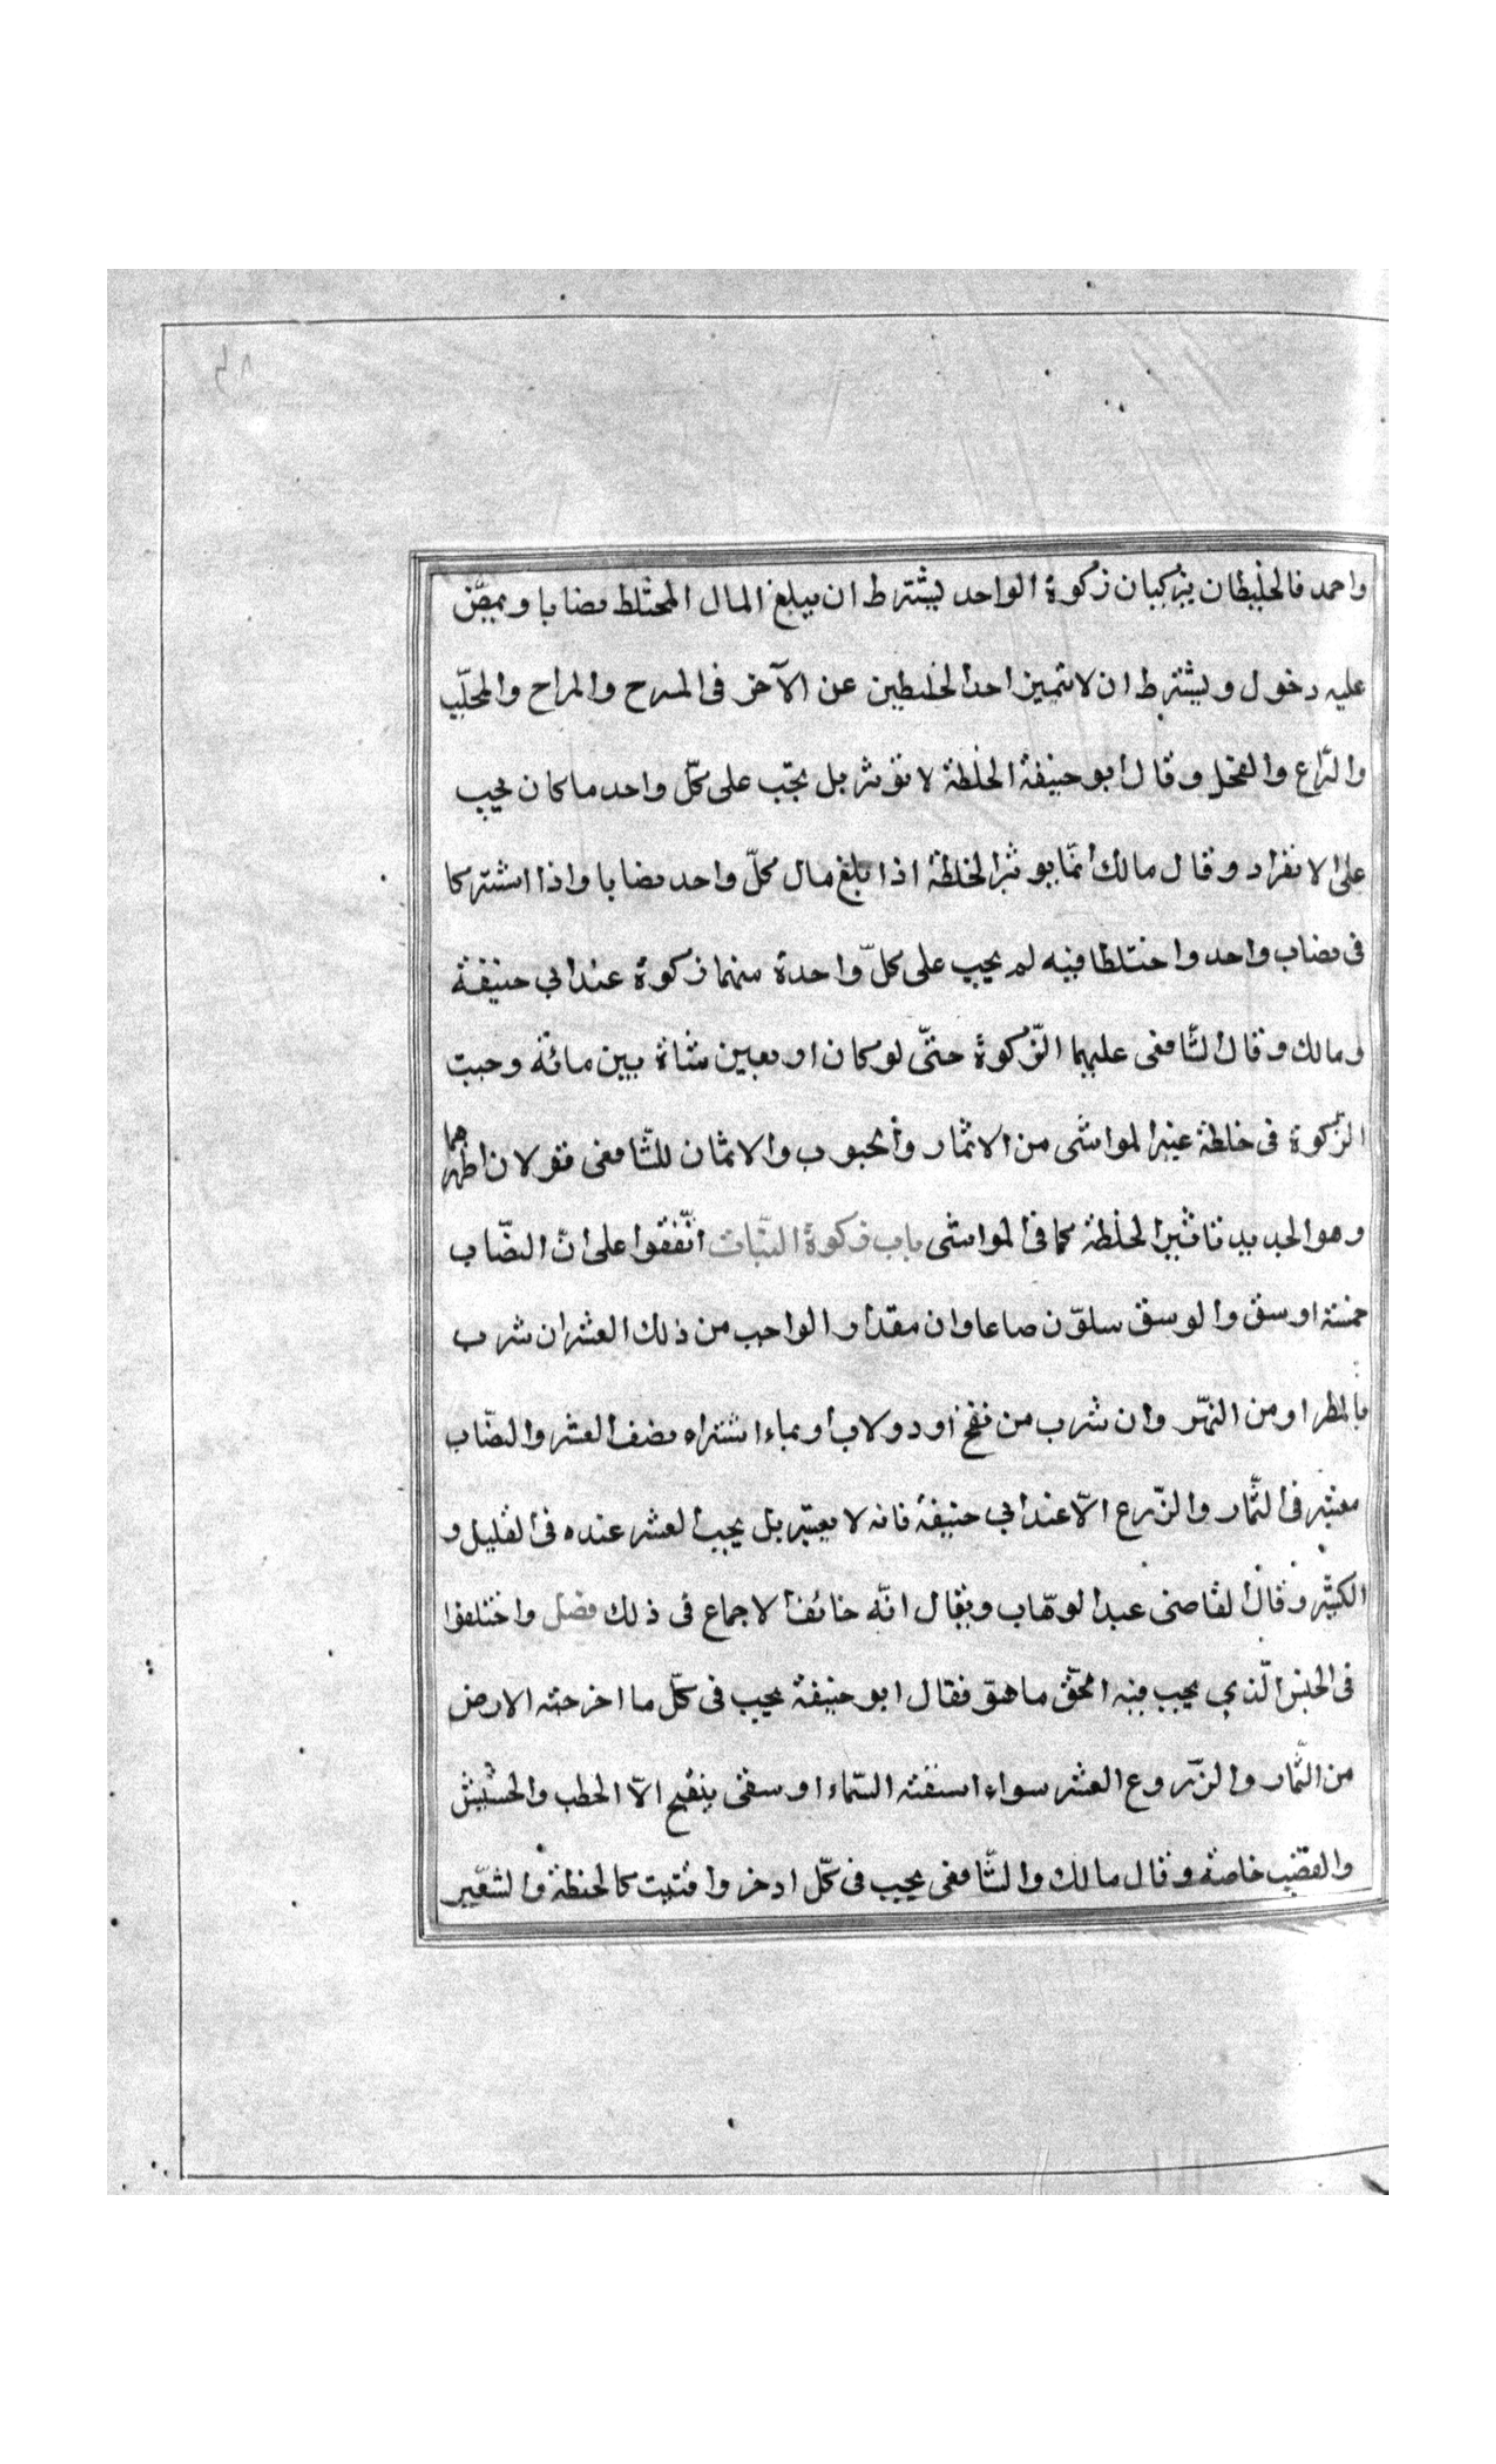 واحمد فالخليطان يزكيان زكوة الواحد يشترط ان يبلغ المال المختلط نصابا ويمضى
عليه دخول ويشترط ان لا يتميز احد الخليطين عن الآخر فى المسرح والمراح والمحلب
والرّاع والفحل وقال ابو حنيفة الخلطة لا تؤثر بل يجب على كلّ واحد ما كان يجب
على الانفراد وقال مالك انّما يوثر الخلطة اذا بلغ مال كلّ واحد نصابا واذا اشتركا
فى نصاب واحد واختلطا فيه لم يجب على كلّ واحدة منهما زكوة عند ابي حنيفة
ومالك وقال الشّافعى عليهما الزّكوة حتّى لو كان اربعين شاة بين مائة وجبت
الزّكوة فى خلطة غير المواشى من الاثمار والحبوب والاثمان للشّافعى قولان اظهرهما
وهو الجديد تاثير الخلطة كما فى المواشى باب زكوة النّبات اتّفقوا على انّ النصّاب
خمسة اوسق والوسق ستّون صاعا وان مقدار الواجب من ذلك العشر ان شرب
بالمطر او من النهّر وان شرب من نضح او دولاب او بماء اشتراه نصف العشر والنصّاب
معتبر فى الثّمار والزّرع الّا عند ابي حنيفة فانه لا يعتبر بل يجب العشر عنده فى القليل و
الكثير وقال القاضى عبد الوهّاب ويقال انّه خالف الاجماع فى ذلك فصل واختلفوا
فى الجنس الّذي يجب فيه الحقّ ما هو فقال ابو حنيفة يجب فى كلّ ما اخرجته الارض
من الثّمار والزّروع العشر سواء اسقته السّماء او سقى بنضح الّا الحطب والحشيش
والقصب خاصة وقال مالك والشّافعى يجب فى كلّ ادخر واقتيت كالحنطة والشعير